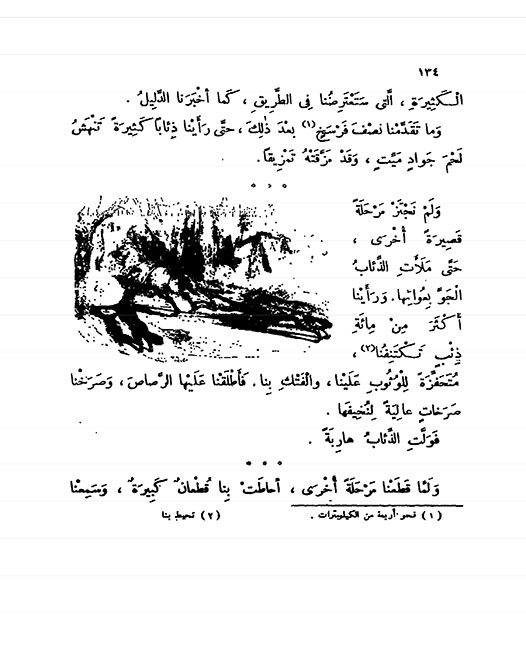 ١٣٤
الْـكَثِيرَةِ ، الَّتِى سَتَعْتَرِضُنا فِى الطَّرِيقِ ، كَما أَخْبَرَنا الدَّلِيلُ .
وَما تَقَدَّمْنا نِصْفَ فَرْسَخٍ (١) بعْدَ ذٰلِكَ ، حتَّى رَأَيْنا ذِئابًا كَثِيرَةً تَنْهَشُ
لَحْمَ جَوادٍ مَيِّتٍ ، وَقَدْ مَزَّقَتْهُ تَمْزِيقًا .
* * *
وَلَمْ نَجْتَزْ مَرْحَلَةً
قَصِيرَةً أُخْرَى ،
حَتَّى مَلَأَتِ الذِّئابُ
الْجَوَّ بِعُوائِها. وَرَأَيْنا
أَكْثَرَ مِنْ مِائَةِ
ذِئْبٍ تَـكْتَنِفُنا(٢) ،
مُتَحَفِّزَةً لِلْوُثُوبِ عَلَيْنا ، والْفَتْكِ بِنا. فَأَطْلَقْنا عَلَيْها الرَّصاصَ ، وَصَرَخْنا
صَرَخاتٍ عالِيَةً لِنُخِيفَها .
فَوَلَّتِ الذِّئابُ هارِبَةً .
* * *
وَلَمَّا قَطَعْنا مَرْحَلَةً أُخْرَى ، أَحاطَتْ بِنا قُطْعانٌ كَبِيرَةٌ ، وَسَمِعْنا
(١) نحو أربعة من الكيلومترات . (٢) تحيط بنا